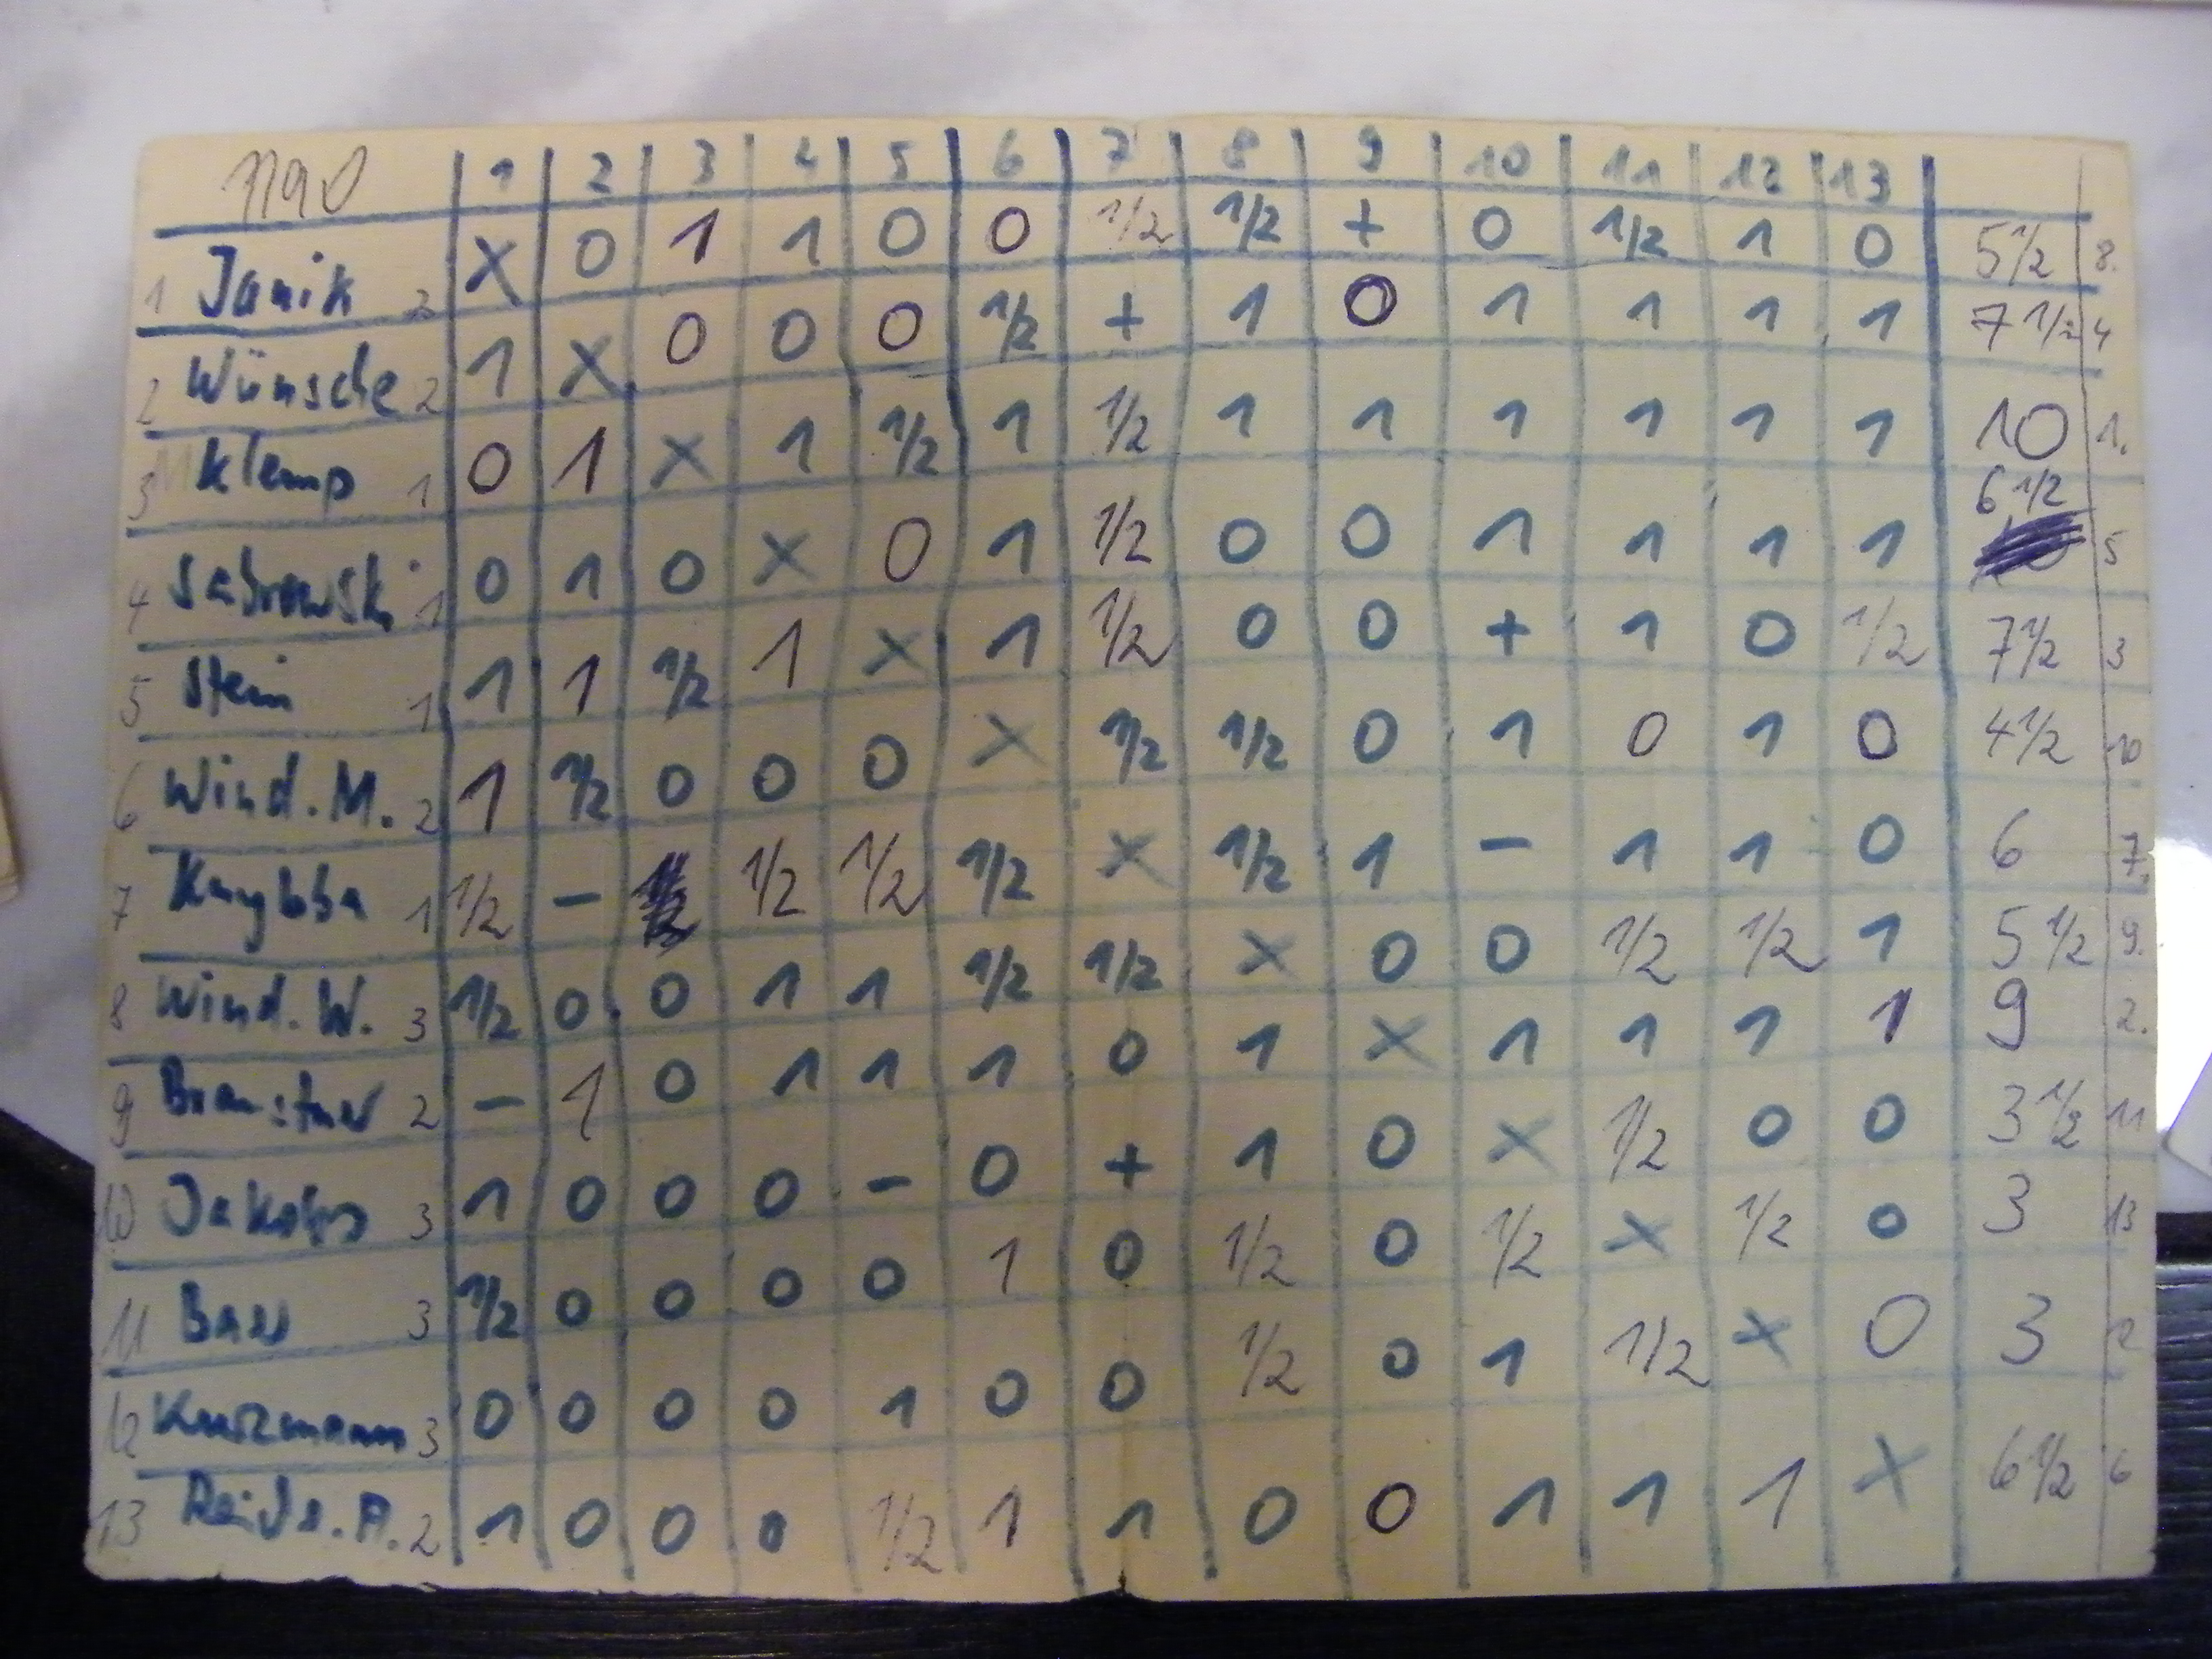 1190 1 2 3 4 5 6 7 8 9 10 11 12 13
1 Janik 2 X 0 1 1 0 0 1/2 1/2 + 0 1/2 1 0 5 1/2 8.
2 Wünsche 2 1 X 0 0 0 1/2 + 1 0 1 1 1 1 7 1/2 4
3 Klemp 1 0 1 X 1 1/2 1 1/2 1 1 1 1 1 1 10 1.
4 Sabrowski 1 0 1 0 X 0 1 1/2 0 0 1 1 1 1 6 1/2 5
5 Stein 1 1 1 1/2 1 X 1 1/2 0 0 + 1 0 1/2 7 1/2 3
6 Wind. M. 2 1 1/2 0 0 0 X 1/2 1/2 0 1 0 1 0 4 1/2 10
7 1 1/2 - 1/2 1/2 1/2 1/2 X 1/2 1 - 1 1 0 6 7.
8 Wind. W. 3 1/2 0 0 1 1 1/2 1/2 X 0 0 1/2 1/2 1 5 1/2 9.
9 2 - 1 0 1 1 1 0 1 X 1 1 1 1 9 2.
10 Jakobs 3 1 0 0 0 - 0 + 1 0 X 1/2 0 0 3 1/2 11
11 3 1/2 0 0 0 0 1 0 1/2 0 1/2 X 1/2 0 3 13
12 Kurzmann 3 0 0 0 0 1 0 0 1/2 0 1 1/2 X 0 3
13 2 1 0 0 0 1/2 1 1 0 0 1 1 1 X 6 1/2 6